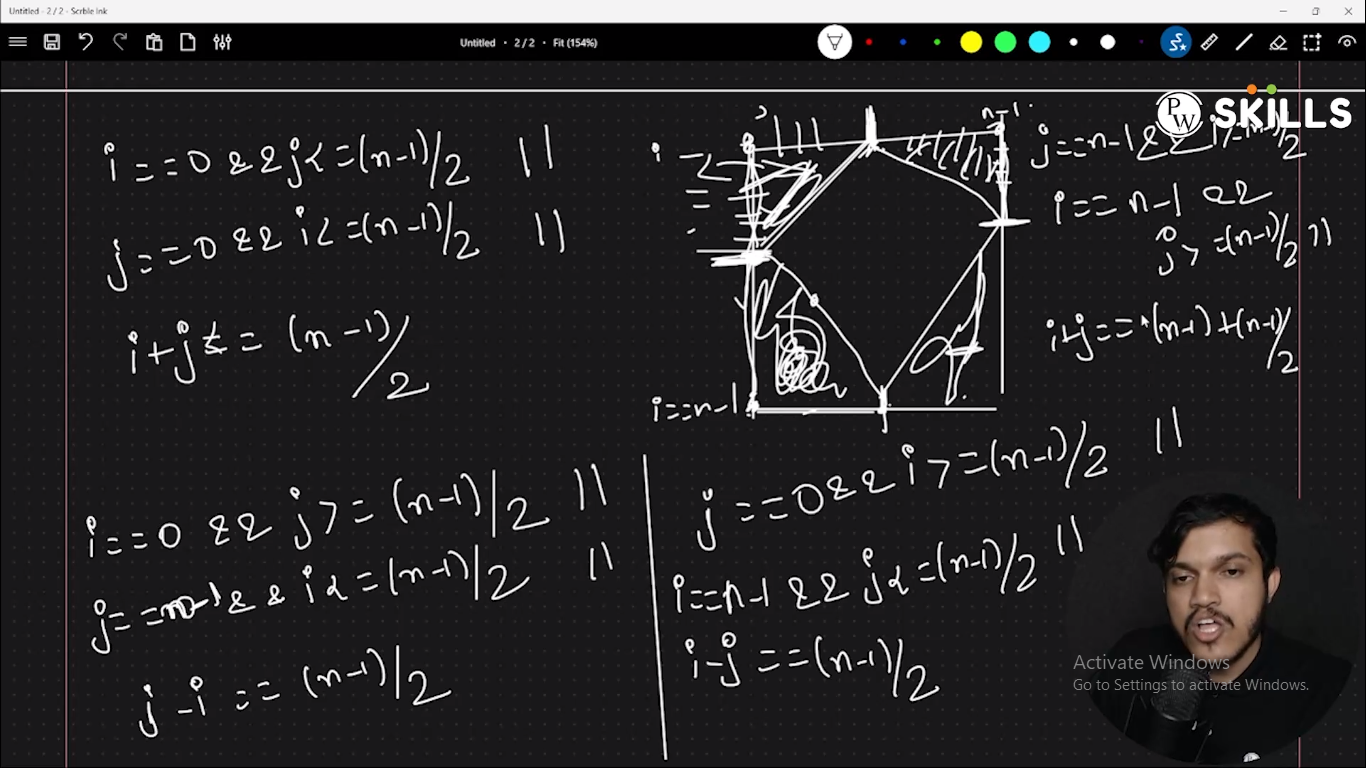 Untitled - 2 / 2 - Scrble Ink
Untitled • 2 / 2 • Fit (154%)
PW SKILLS
i==0 && j<=(n-1)/2 ||
j==0 && i<=(n-1)/2 ||
i+j<= (n-1)/2
i
n-1
i==n-1
i==n-1 &&
j>=(n-1)/2 ||
i+j==(n-1)+(n-1)/2
i==0 && j>=(n-1)/2 ||
j==n-1 && i<=(n-1)/2 ||
j-i==(n-1)/2
j==0 && i>=(n-1)/2 ||
i==n-1 && j<=(n-1)/2 ||
i-j==(n-1)/2
Activate Windows
Go to Settings to activate Windows.